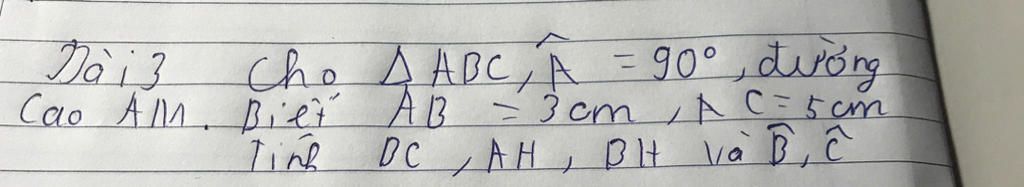 Bài 3 Cho Δ ABC, Â = 90°, đường
Cao AM. Biết AB = 3 cm, AC = 5 cm
Tính BC, AH, BH và B̂, Ĉ